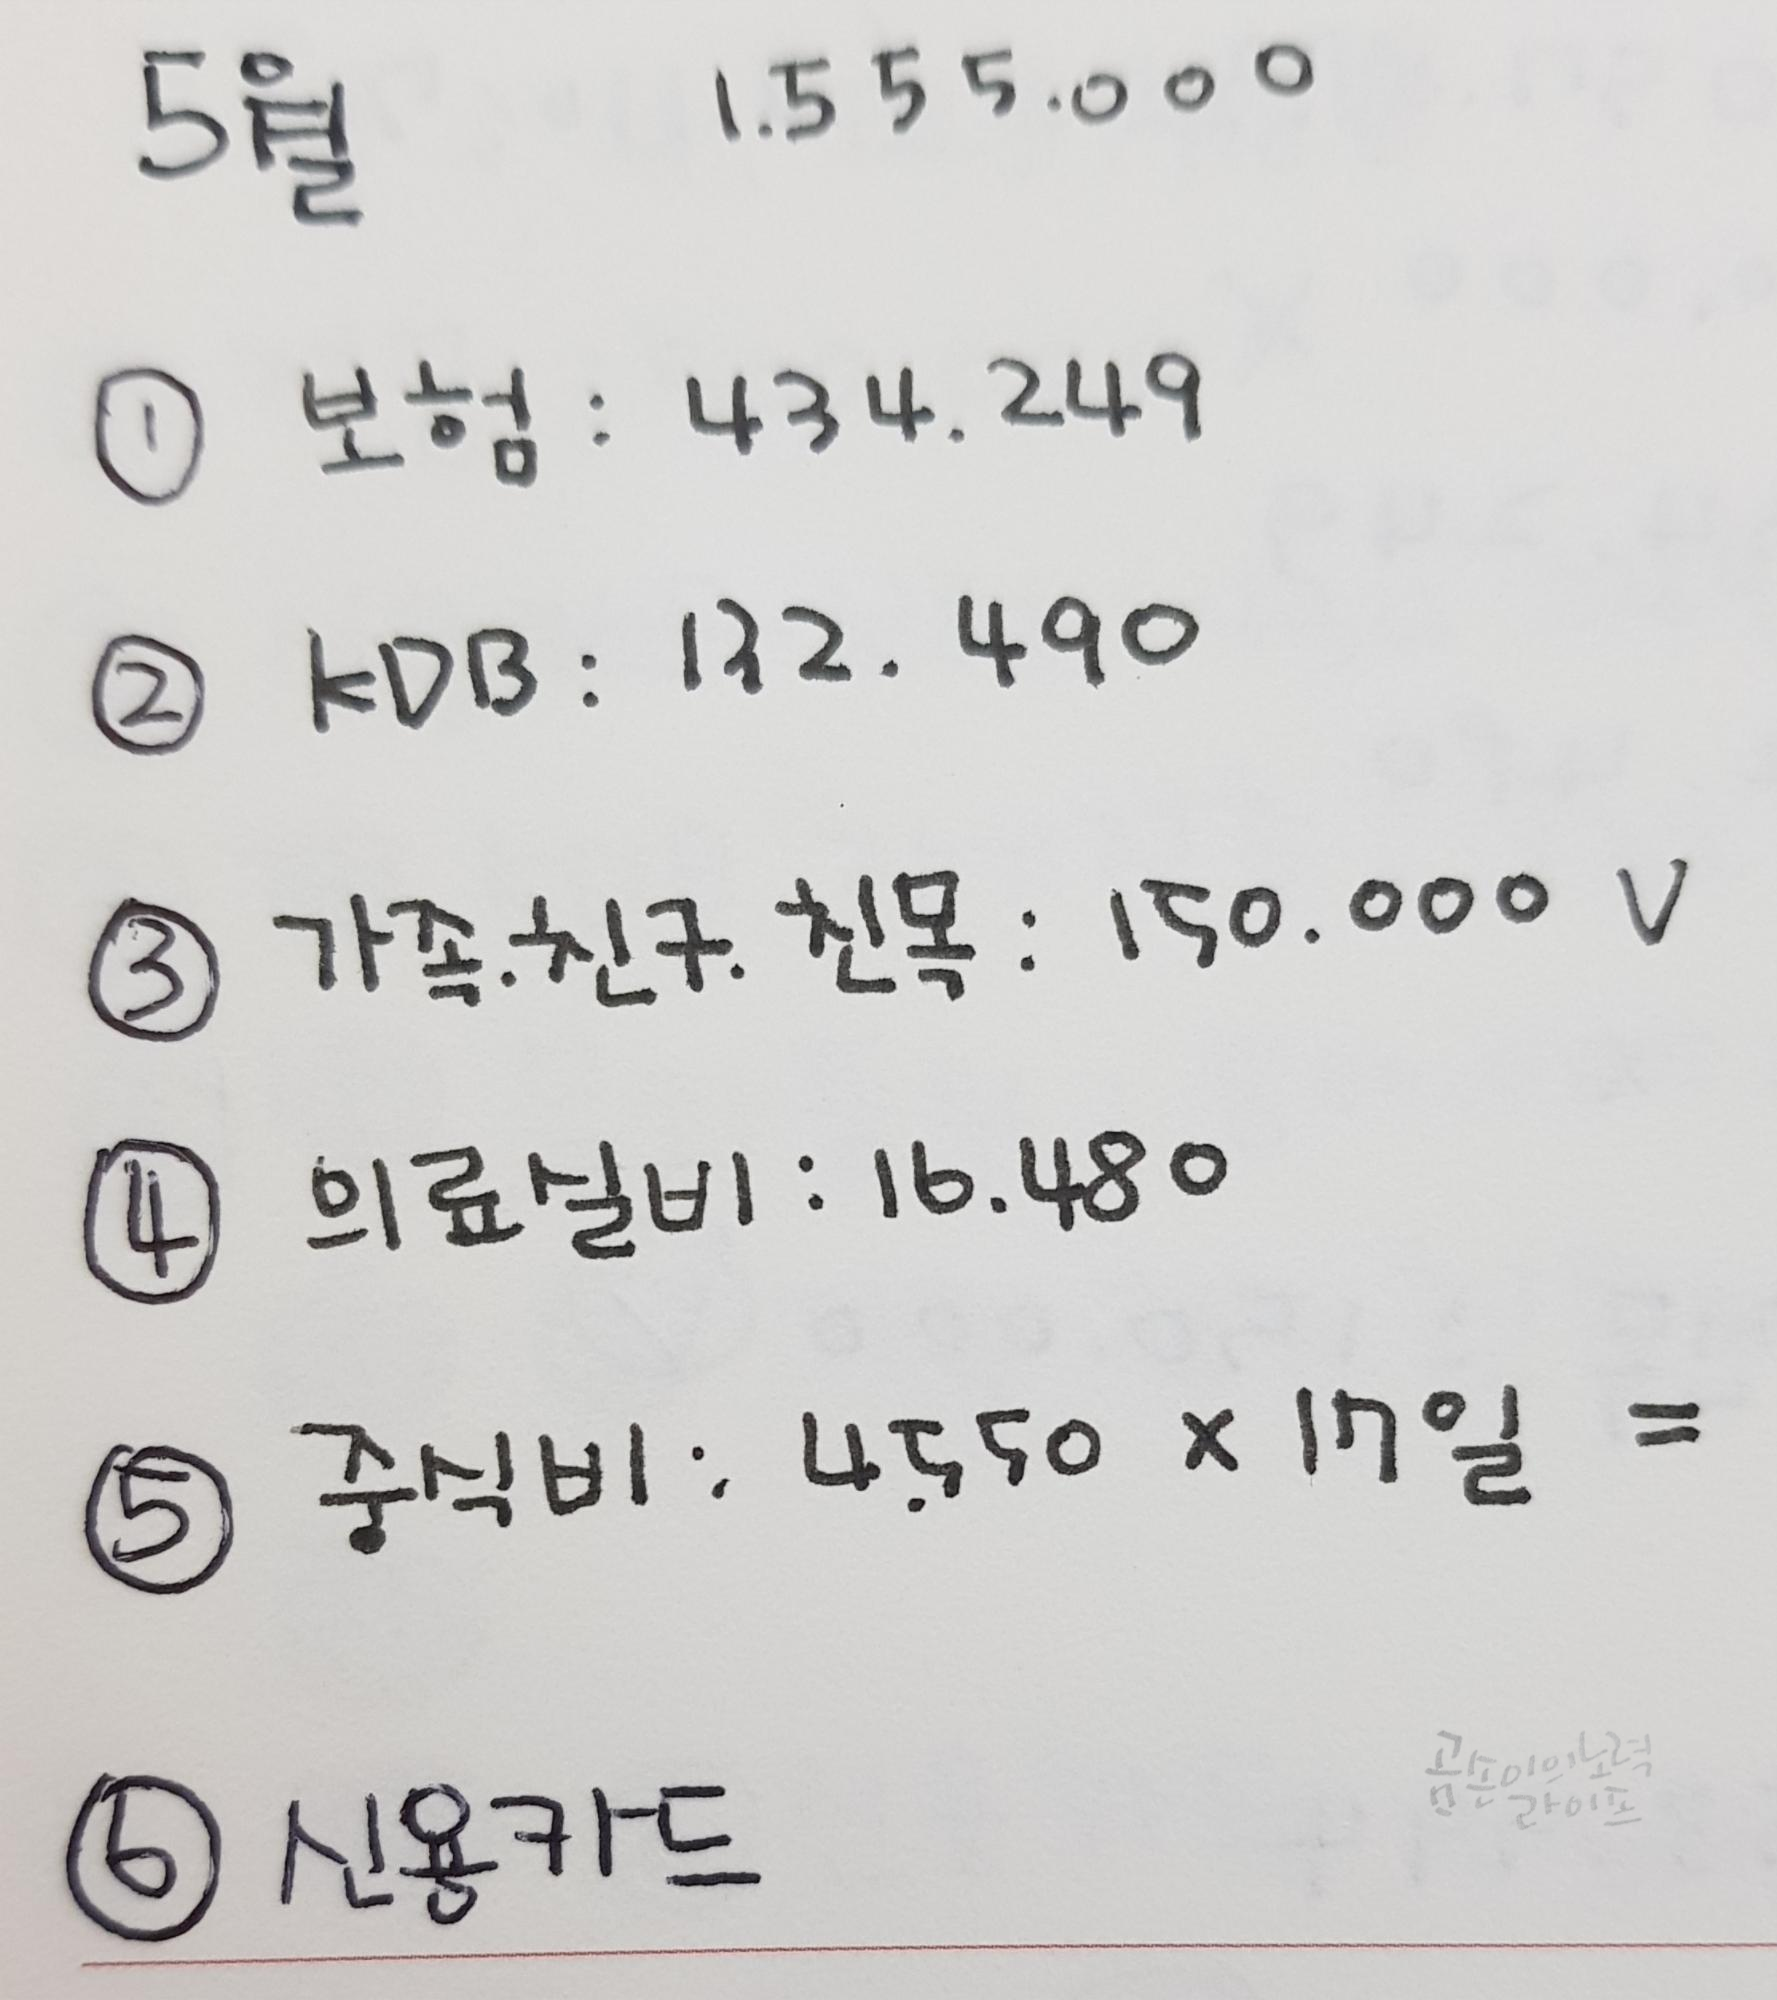 5월 1.555.000
① 보험 : 434.249
② KDB : 132.490
③ 가족.친구. 친목 : 150.000 V
④ 의료실비 : 16.480
⑤ 중식비 : 4.550 x 17일 =
⑥ 신용카드
곰손이의노력
라이프